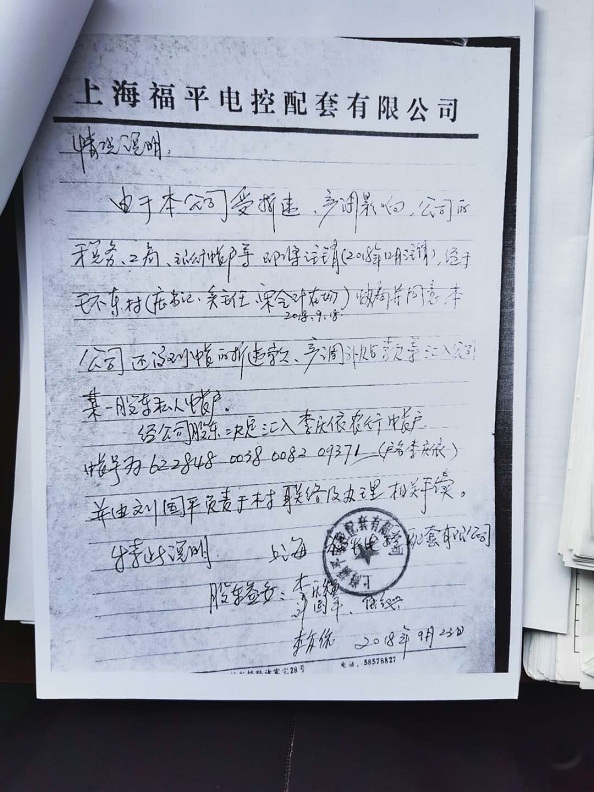 上海福平电控配套有限公司
情况说明：
由于本公司受拆违、产调影响，公司的
税务、工商、银行帐户等即将注销(2018年12月注销)，经于
村(书记、主任、会计在场)协商并同意，本
2018.9.18
公司还没到帐的拆违款、产调补贴款等汇入公司
某一股东私人帐户。
经公司股东决定汇入李庆依农行帐户
帐号为622848 0038 0082 09371 (户名李庆依)
并由刘国平负责于村联络及办理相关手续。
特此说明
上海 配套有限公司
股东签字：
刘国平、
2018年9月23日
电话：58578827